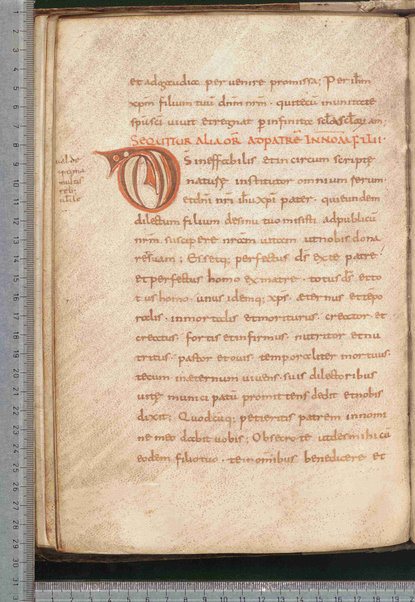 et adgaudia pervenire promissa; Per ihm
xpm filium tuu dnm nrm · qui tecu in unitate
spus sci vivit et regnat p infinita scla sclor am;
SEQUITUR ALIA OR AD PATRE IN NOM FILII·
DS ineffabilis et in circum scriptę
naturę institutor omnium rerum
et dni nri ihu xpi pater · qui eundem
dilectum filium de sinu tuo misisti adpublicu
nrm suscipere nram vitam ut nobis dona
ret suam; Essetq; perfectus ds ex te patre
et perfectus homo ex matre · totus ds et to
tus homo · unus idemq; xps · aeternus et tempo
ralis · inmortalis et moriturus · creator et
creatus · fortis et infirmus · nutritor et nu
tritus · pastor et ovis · temporaliter mortuus ·
tecum in aeternum vivens · suis dilectoribus
vitę munici patu promittens dedit et nobis
dixit; Quodcuq; petieritis patrem in nomi
ne meo dabit vobis; Obsecro te ut des mihi cu
eodem filio tuo · te in omibus benedicere et